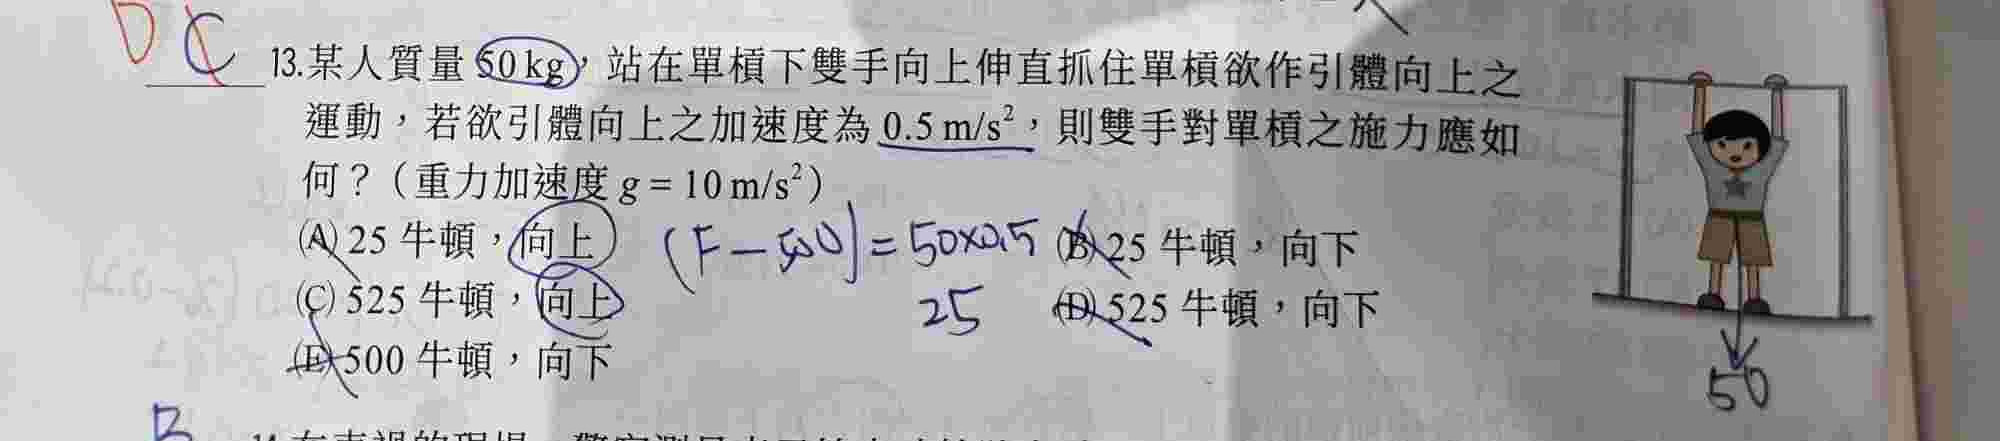 D C
13.某人質量 50 kg，站在單槓下雙手向上伸直抓住單槓欲作引體向上之
運動，若欲引體向上之加速度為 0.5 m/s²，則雙手對單槓之施力應如
何？（重力加速度 g = 10 m/s²）
(A) 25 牛頓，向上 (F − 500) = 50×0.5 (B) 25 牛頓，向下
(C) 525 牛頓，向上 25 (D) 525 牛頓，向下
(E) 500 牛頓，向下
50
B